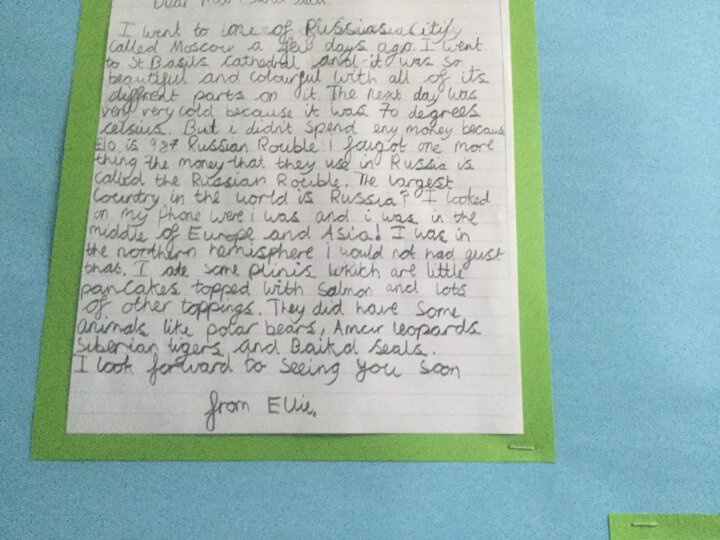 Dear Mum and dad
I went to one of Russiasia Citify
Called Moscow a few days ago. I went
to St Basils Cathedral and it was so
beautiful and colourful with all of its
different parts on it. The next day was
very very cold because it was 70 degrees
celsius. But i didn't spend eny money because
£10 is 987 Russian Rouble i fougot one more
thing the money that they use in Russia is
called the Russian Rouble. The largest
Country in the world is Russia? I looked
on my Phone were i was and i was in the
middle of Europe and Asia! I was in
the northern hemisphere i would not had gust
that. I ate some plinis which are little
pancakes topped with Salmon and lots
of other toppings. They did have some
animals like polar bears, Amur leopards
Siberian tigers and Baikal Seals.
I look forward to seeing you soon
from Ellie.